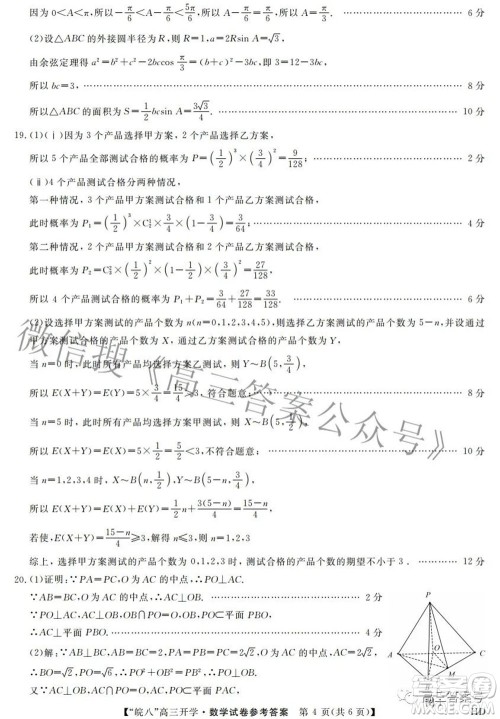 因为0<A<π,所以-π/6<A-π/6<5π/6,所以A-π/6=π/6,所以A=π/3. ………… 6分
(2)设△ABC的外接圆半径为R,则R=1,a=2Rsin A=√3,
由余弦定理得a²=b²+c²-2bccos π/3=(b+c)²-3bc,即3=12-3bc,
所以bc=3, ………… 8分
所以△ABC的面积为S=1/2 bcsin A=3√3/4. ………… 10分
19.(1)(ⅰ)因为3个产品选择甲方案,2个产品选择乙方案,
所以5个产品全部测试合格的概率为P=(1/2)³×(3/4)²=9/128; ………… 2分
(ⅱ)4个产品测试合格分两种情况,
第一种情况,3个产品甲方案测试合格和1个产品乙方案测试合格,
此时概率为P₁=(1/2)³×C₂¹×3/4×(1-3/4)=3/64; ………… 4分
第二种情况,2个产品甲方案测试合格和2个产品乙方案测试合格,
此时概率为P₂=C₃²×(1/2)²×(1-1/2)×(3/4)²=27/128.
所以4个产品测试合格的概率为P₁+P₂=3/64+27/128=33/128. ………… 6分
(2)设选择甲方案测试的产品个数为n(n=0,1,2,3,4,5),则选择乙方案测试的产品个数为5-n,并设通过
甲方案测试合格的产品个数为X,通过乙方案测试合格的产品个数为Y,
当n=0时,此时所有产品均选择方案乙测试,则Y~B(5,3/4),
所以E(X+Y)=E(Y)=5×3/4=15/4>3,符合题意; ………… 8分
当n=5时,此时所有产品均选择方案甲测试,则X~B(5,1/2),
所以E(X+Y)=E(X)=5×1/2=5/2<3,不符合题意; ………… 10分
当n=1,2,3,4时,X~B(n,1/2),Y~B(5-n,3/4),
所以E(X+Y)=E(X)+E(Y)=1/2 n+3(5-n)/4=(15-n)/4.
若使,E(X+Y)=(15-n)/4≥3,解得n≤3,则n=1,2,3
综上,选择甲方案测试的产品个数为0,1,2,3时,测试合格的产品个数的期望不小于3. ………… 12分
20.(1)证明:∵PA=PC,O为AC的中点,∴PO⊥AC.
∵AB=BC,O为AC的中点,∴AC⊥OB. ………… 2分
∵PO⊥AC,AC⊥OB,OB∩PO=O,OB,PO⊂平面PBO,
∴AC⊥平面PBO. ………… 4分
(2)解:∵AB⊥BC,AB=BC=2,PA=PB=PC=2√2,O为AC的中点,∴AC=2√2,
∴BO=√2,PO=√6,∴PO²+OB²=PB²,∴PO⊥OB.
∵PO⊥AC,AC∩OB=O,AC,OB⊂平面ABC,
P
A
O
C
M
B
微信搜《高三答案公众号》
"皖八"高三开学·数学试卷参考答案 第4页(共6页)
HD